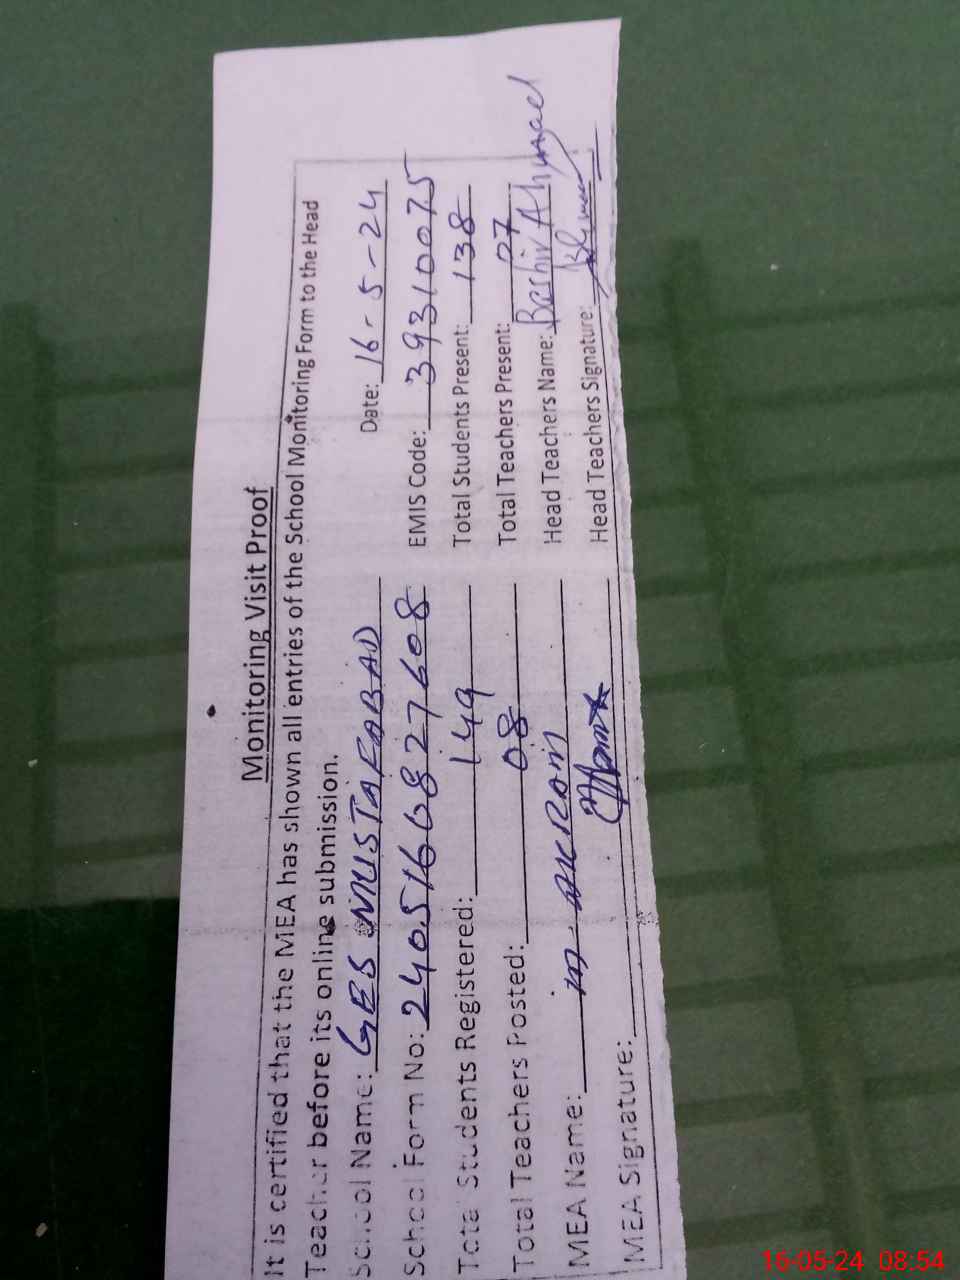 Monitoring Visit Proof
It is certified that the MEA has shown all entries of the School Monitoring Form to the Head
Teacher before its online submission.
School Name: GES MUSTAFABAD Date: 16-5-24
School Form No: 2405166827608 EMIS Code: 39310075
Total Students Registered: 149 Total Students Present: 138
Total Teachers Posted: 08 Total Teachers Present: 07
MEA Name: M. AKRAM Head Teachers Name: Bashir Ahmad
MEA Signature: Head Teachers Signature:
16-05-24 08:54